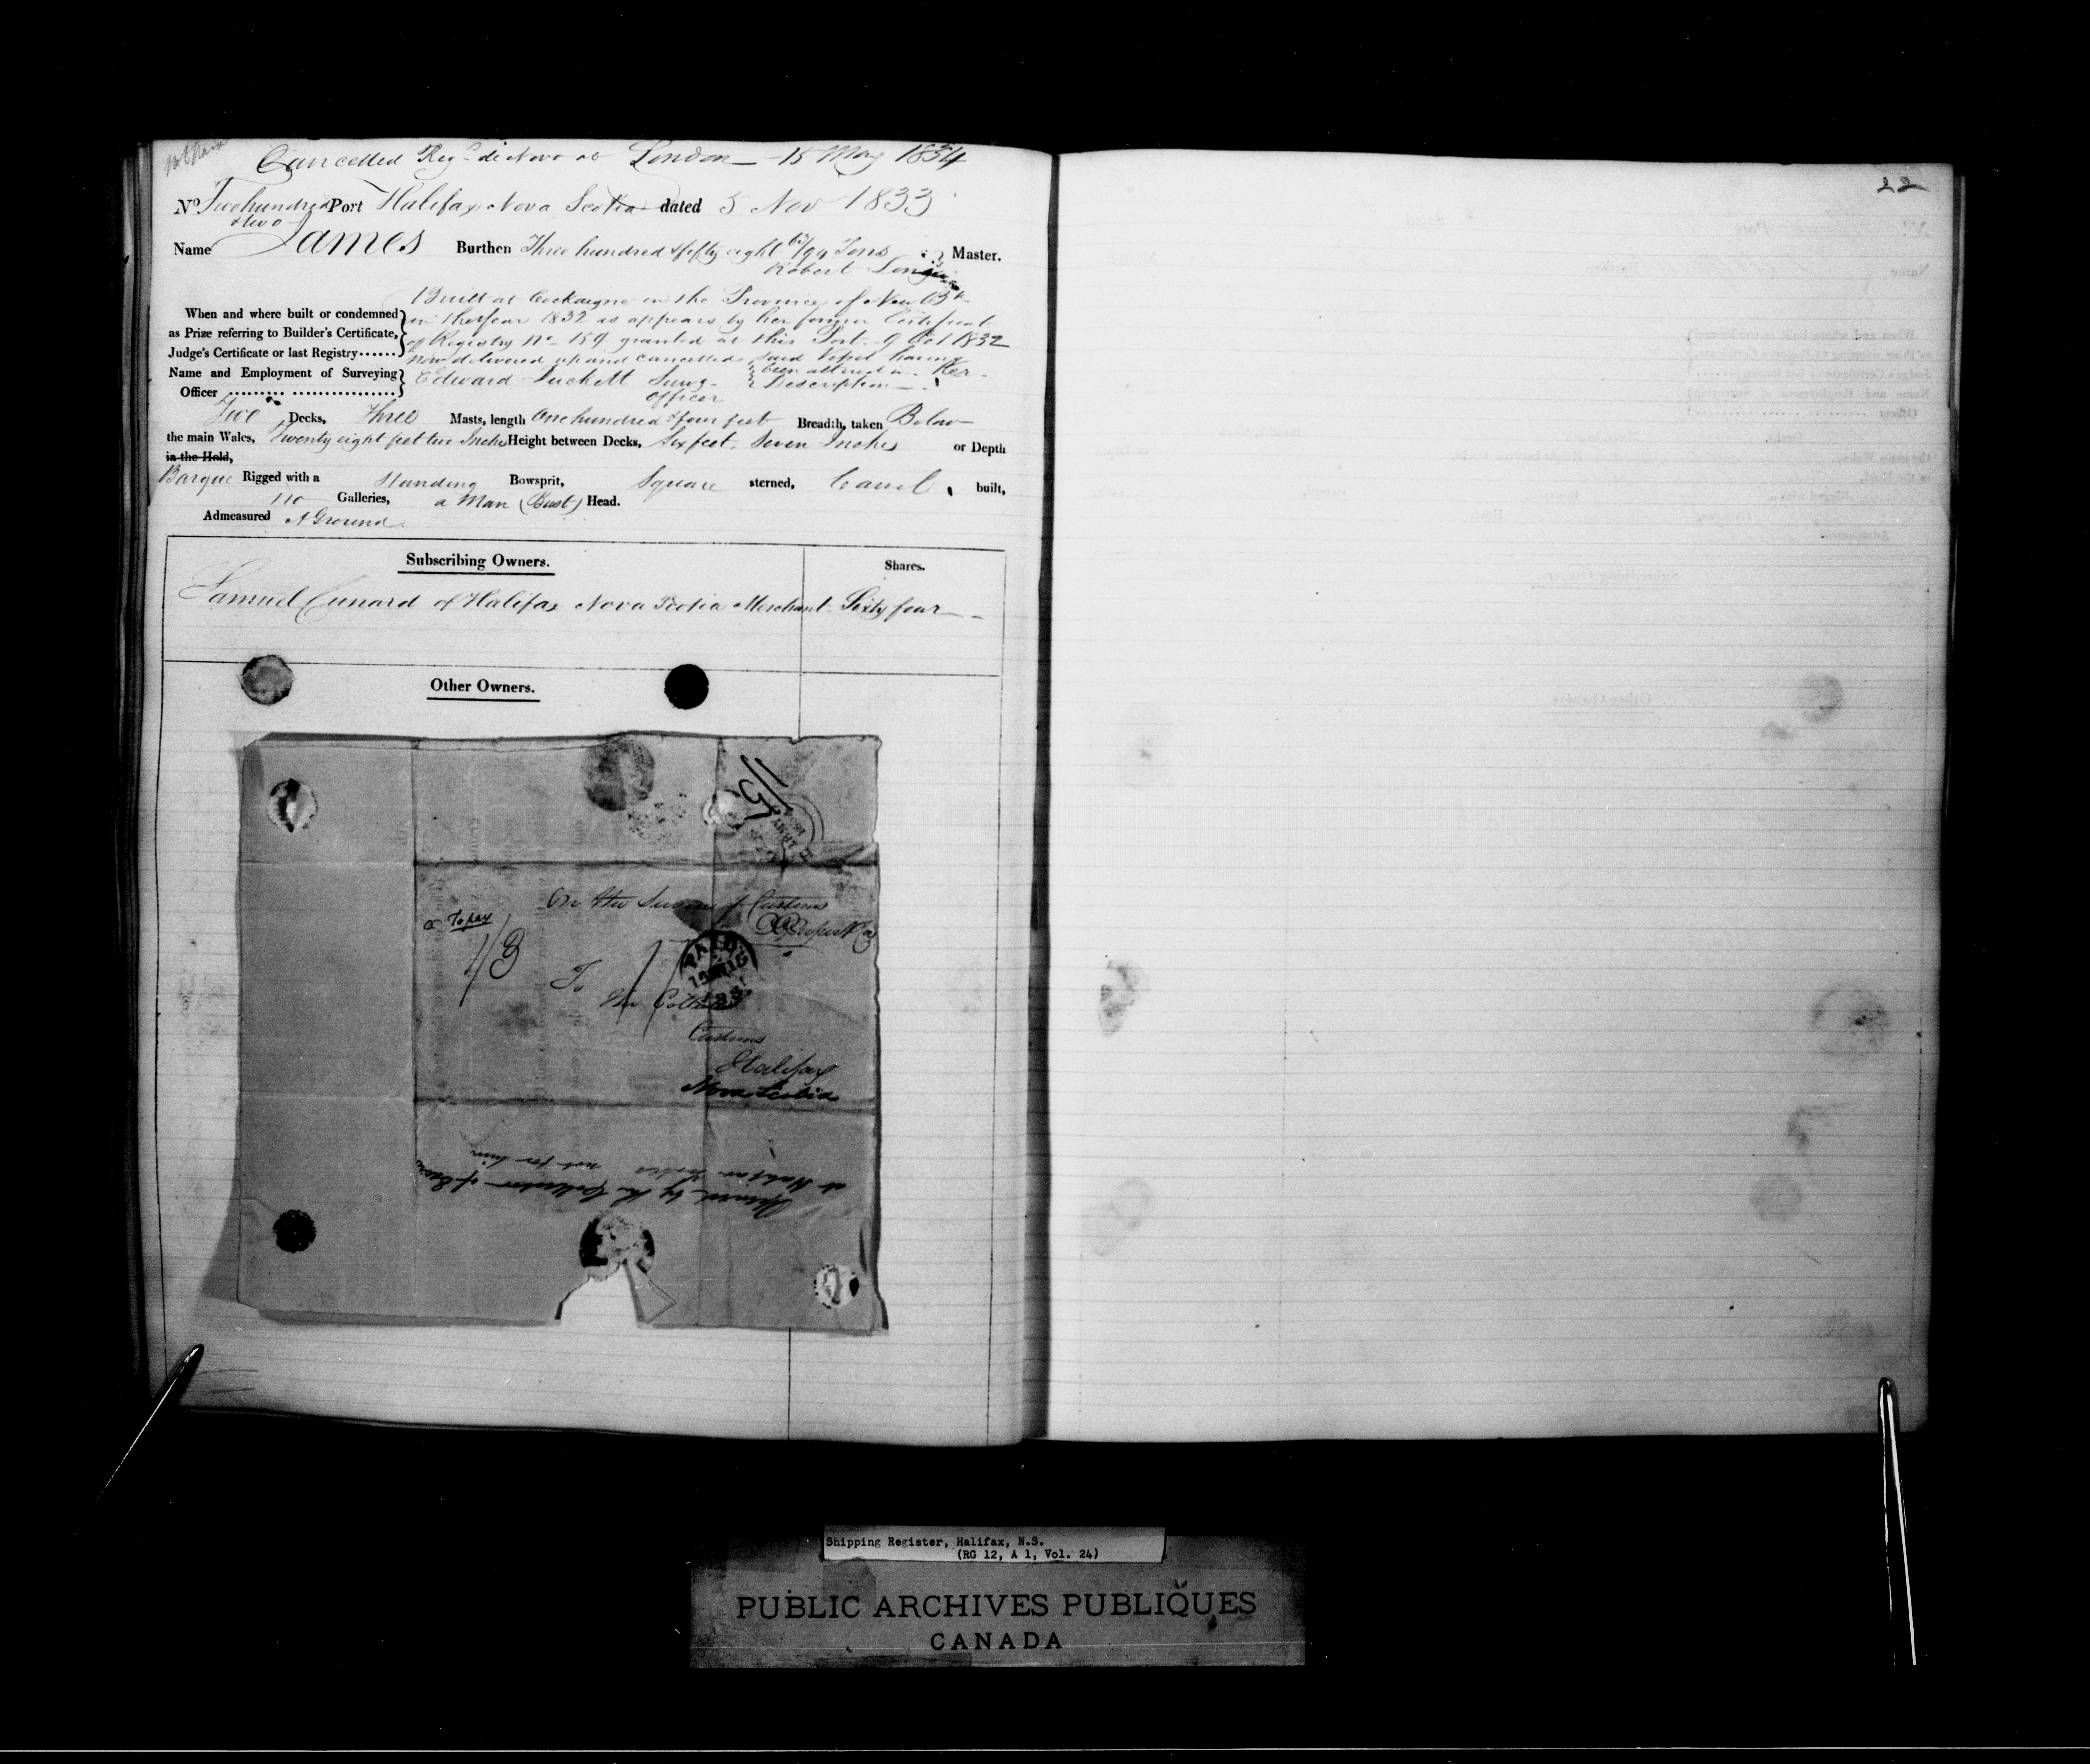 Cancelled Reg. de Novo at London 15 May 1834
No. Two hundred & two Port Halifax Nova Scotia dated 5 Nov 1833
Name James Burthen Three hundred & fifty eight /94 Tons Master.
Robert
Built at Cockaigne in the Province of New Bk
When and where built or condemned in the Year 1832 as appears by her former Certificate
as Prize referring to Builder's Certificate, of Registry No 159 granted at this Port 9 Oct 1832
Judge's Certificate or last Registry...... now delivered up and cancelled said Vessel having
Name and Employment of Surveying Edward Duckett Survg. been altered in Her
Officer ......... .................. Officer Description
Two Decks, Three Masts, length One hundred & four feet Breadth, taken Below
the main Wales, Twenty eight feet two Inches Height between Decks, Six feet Seven Inches or Depth
in the Hold,
Barque Rigged with a Standing Bowsprit, Square sterned, Carvel built,
no Galleries, a Man (Bust) Head.
Admeasured A Ground
Subscribing Owners. Shares.
Samuel Cunard of Halifax Nova Scotia Merchant Sixty four
Other Owners.
On the Service of Customs
To pay
1/3
To
the
Customs
Halifax
Nova Scotia
Opened by the Collector of Excise
at Halifax
not for him
22
Shipping Register, Halifax, N.S.
(RG 12, A 1, Vol. 24)
PUBLIC ARCHIVES PUBLIQUES
CANADA